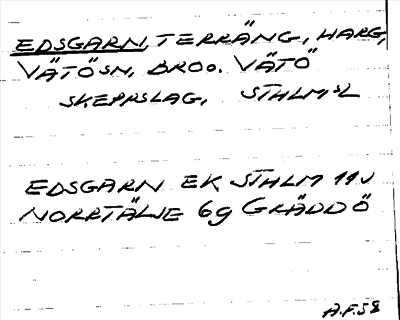 EDSGARN, TERRÄNG, HARG,
VÄTÖ SN, BRO o. VÄTÖ
SKEPPSLAG, STHLMS L
EDSGARN EK STHLM 11 J
NORRTÄLJE 6g GRÄDDÖ
A.F. 58